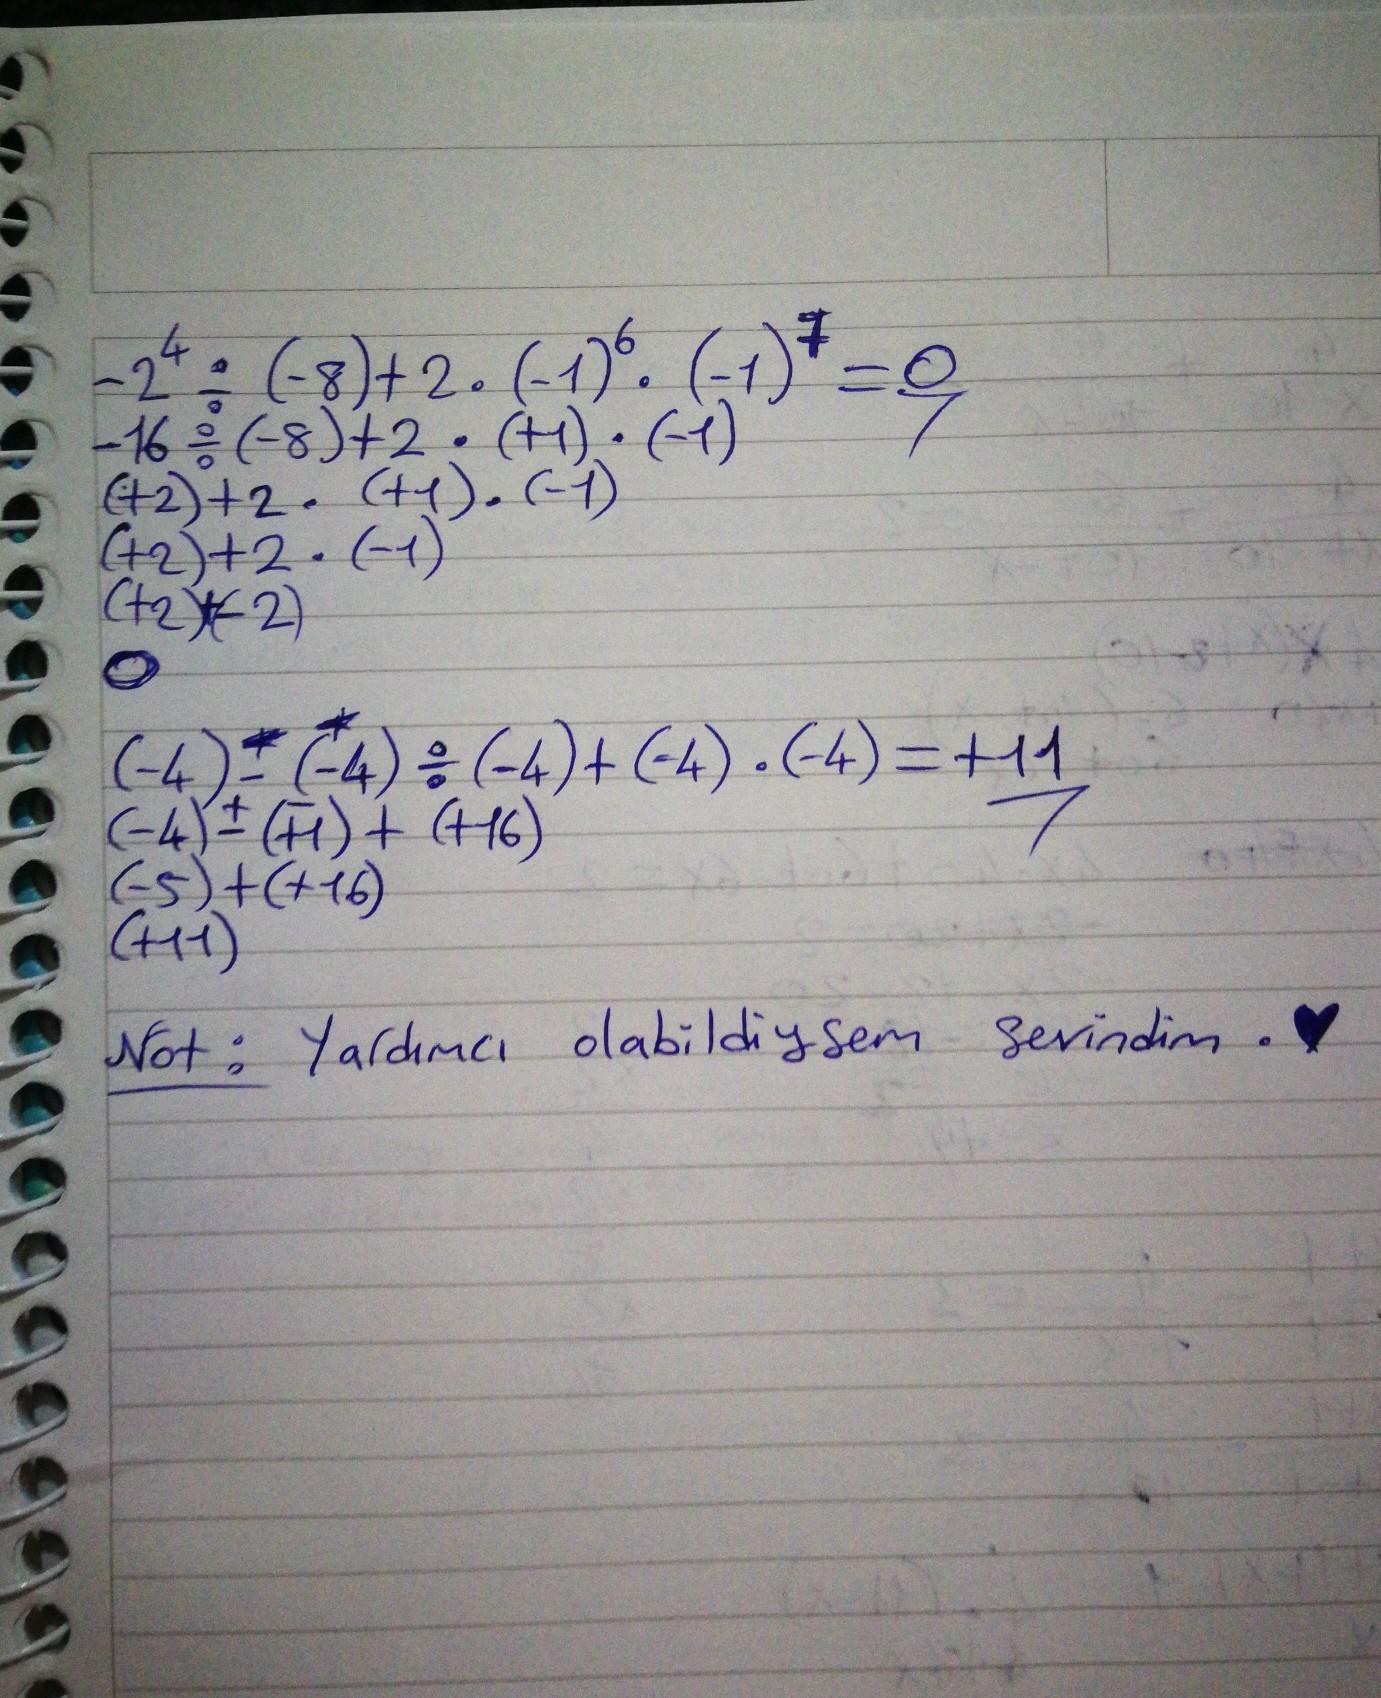 -2⁴ ÷ (-8)+2 . (-1)⁶ . (-1)⁷ = 0
-16 ÷ (-8)+2 . (+1) . (-1)
(+2)+2 . (+1) . (-1)
(+2)+2 . (-1)
(+2)+(-2)
0
(-4) - (-4) ÷ (-4) + (-4) . (-4) = +11
(-4) ± (+1) + (+16)
(-5)+(+16)
(+11)
Not: Yardımcı olabildiysem sevindim. ♥